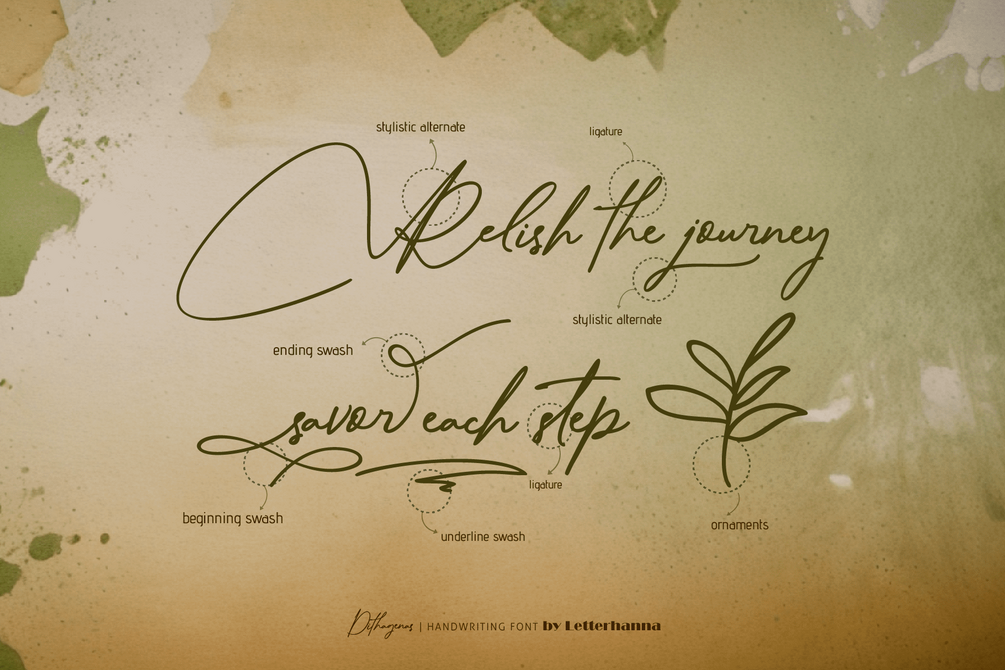 stylistic alternate
ligature
Relish the journey
stylistic alternate
ending swash
savor each step
ligature
beginning swash
underline swash
ornaments
Dithagenas | HANDWRITING FONT by Letterhanna